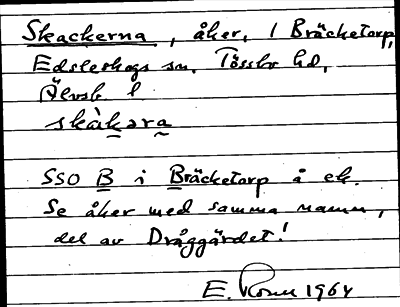 Skackerna, åker, i Bräcketorp,
Edsleskogs sn, Tössbo hd,
Älvsb l
skàkəra
SSO B i Bräcketorp å ek.
Se åker med samma namn,
del av Dråggärdet!
E. 1964